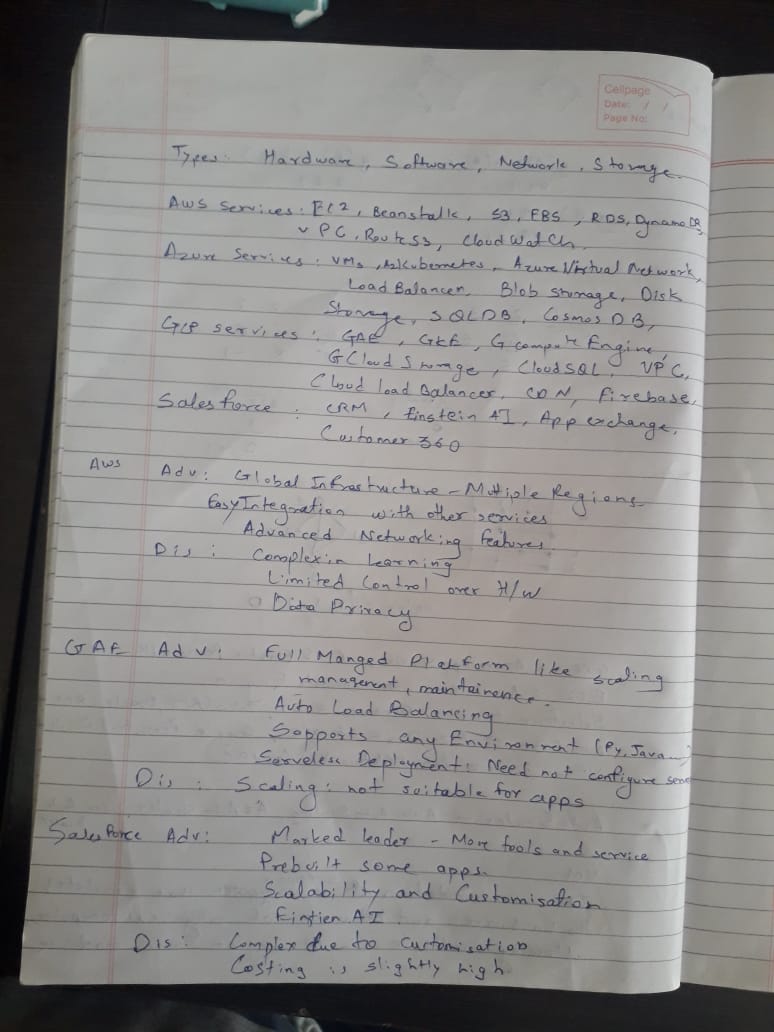 Cellpage
Date: / /
Page No:
Types: Hardware, Software, Network, Storage.
AWS Services: EC2, Beanstalk, S3, EBS, RDS, Dynamo DB,
VPC, Route53, CloudWatch.
Azure Services: VMs, Kubernetes, Azure Virtual Network,
Load Balancer, Blob storage, Disk
Storage, SQLDB, Cosmos DB,
GCP services: GAE, GKE, G compute Engine,
GCloud Storage, CloudSQL, VPC,
Cloud load Balancer, CDN, Firebase,
Sales force: CRM, Einstein AI, App exchange,
Customer 360
AWS Adv: Global Infrastructure - Mutiple Regions
Easy Integration with other services
Advanced Networking features
Dis: Complex in Learning
Limited Control over H/W
Data Privacy
GAE Adv: Full Manged Platform like scaling
management, maintainence.
Auto Load Balancing
Supports any Environment (Py, Java...)
Serveless Deployment: Need not configure
Dis: Scaling: not suitable for apps
Salesforce Adv: Marked leader - More tools and service
Prebuilt some apps.
Scalability and Customisation
AI
Dis: Complex due to customisation
Costing is slightly high